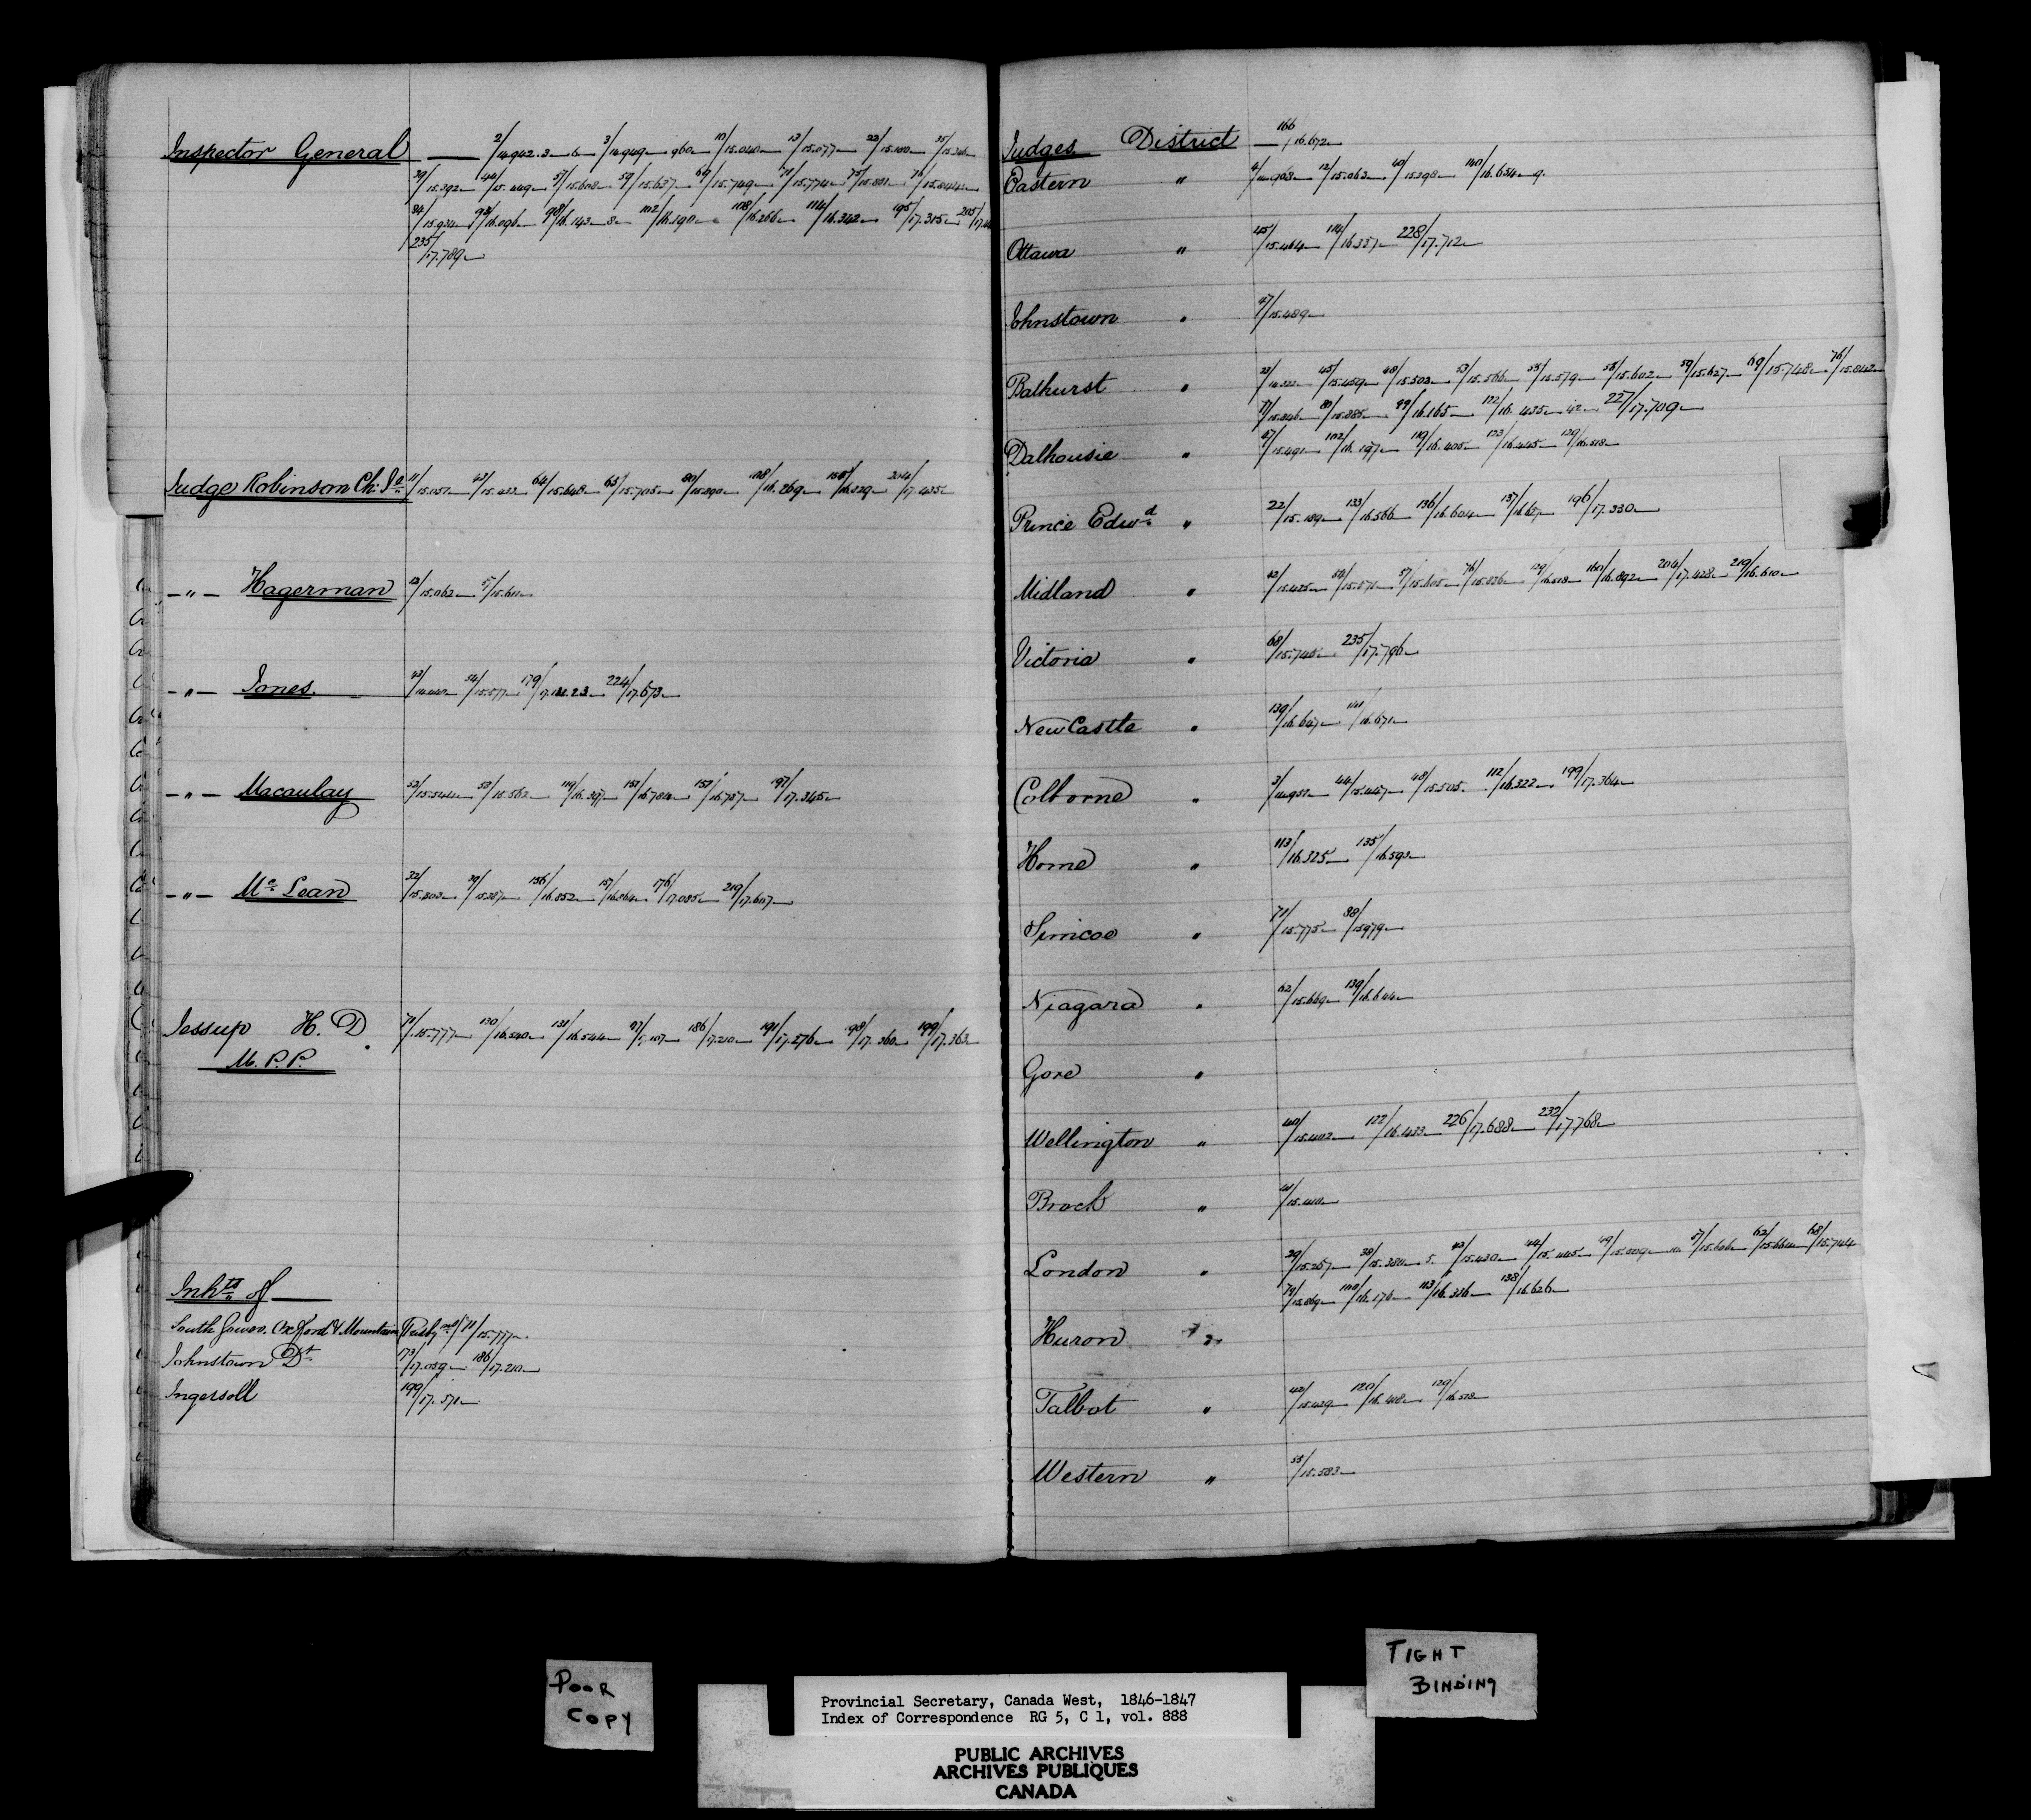 Inspector General — 2/14.942.3—6— 3/14.949— 960— 10/15.040— 13/15.077— 22/15.180—
39/15.392— 44/15.449— 57/15.608— 59/15.637— 69/15.749— 71/15.774— 75/15.831— 76/15.844—
84/15.934— 93/16.096— 98/16.143—8— 102/16.190— 108/16.266— 114/16.342— 195/17.315— 205/
235/17.789—
Judge Robinson Ch: Je 11/15.051— 43/15.433— 64/15.648— 65/15.705— 80/15.890— 108/16.269— 204/17.435—
—"— Hagerman 12/15.062— 57/15.611—
—"— Jones. 43/14.440— 54/15.577— 179/17.121.23— 224/17.673—
—"— Macaulay 52/15.544— 53/15.562— 119/16.397— 151/16.784— 151/16.787— 197/17.345—
—"— Mc Lean 32/15.303— 39/15.387— 156/16.852— 157/16.864— 176/17.085— 219/17.607—
Jessup H. D. 71/15.777— 130/16.540— 131/16.544— 186/17.210— 191/17.276— 198/17.360— 199/17.363—
M. P. P.
Inhts of —
South Gower, Oxford & Mountain 71/15.777—
Johnstown Dt 173/17.059— 186/17.210—
Ingersoll 199/17.371—
Judges District — 166/16.672—
Eastern " 4/14.968— 12/15.063— 40/15.398— 140/16.654—9.
Ottawa " 45/15.464— 114/16.337— 228/17.712—
Johnstown " 47/15.489—
Bathurst " 45/15.459— 48/15.503— 53/15.566— 55/15.579— 56/15.602— 59/15.627— 69/15.748— 76/15.842—
77/15.846— 80/15.885— 99/16.165— 122/16.435—42— 227/17.709—
Dalhousie " 47/15.491— 102/16.197— 119/16.405— 123/16.445— 129/16.518—
Prince Edwd " 22/15.189— 133/16.566— 136/16.604— 137/16.617— 196/17.330—
Midland " 42/15.425— 54/15.571— 57/15.605— 76/15.836— 129/16.518— 160/16.892— 204/17.428— 219/16.610—
Victoria " 68/15.745— 235/17.796—
NewCastle " 139/16.647— 141/16.671—
Colborne " 3/14.951— 44/15.447— 48/15.505— 112/16.322— 199/17.364—
Home " 113/16.325— 135/16.593—
Simcoe " 71/15.775— 88/15979—
Niagara " 62/15.669— 139/16.644—
Gore "
Wellington " 40/15.402— 122/16.433— 226/17.688— 232/17.768—
Brock " 41/15.410—
London " 29/15.257— 38/15.380—5. 42/15.430— 44/15.445— 49/15.509— 57/15.606— 62/15.664— 68/15.744
79/15.869— 100/16.176— 113/16.336— 138/16.626—
Huron "
Talbot " 42/15.429— 120/16.408— 129/16.518—
Western " 55/15.583—
POOR
COPY
TIGHT
BINDING
Provincial Secretary, Canada West, 1846-1847
Index of Correspondence RG 5, C 1, vol. 888
PUBLIC ARCHIVES
ARCHIVES PUBLIQUES
CANADA